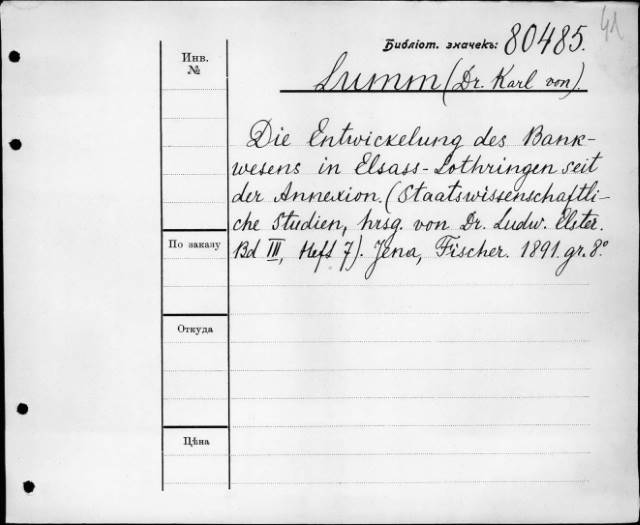 41
Библіот. значекъ: 80485.
Инв.
№
Lumm (Dr. Karl von).
Die Entwickelung des Bank-
wesens in Elsass-Lothringen seit
der Annexion. (Staatswissenschaftli-
che Studien, hrsg. von Dr. Ludw. Elster.
По заказу
Bd III, Heft 7). Jena, Fischer. 1891. gr. 8°
Откуда
Цѣна